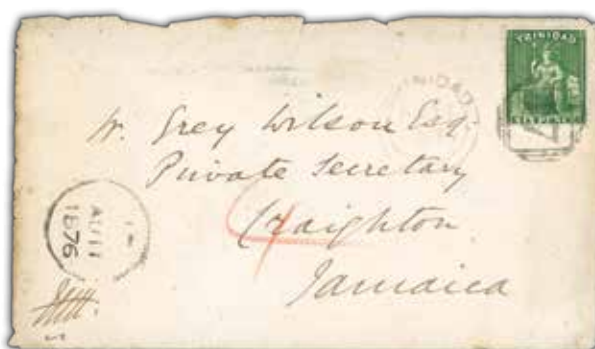 TRINIDAD
SIXPENCE
TRINIDAD
W. Grey Wilson Esq.
Private Secretary
Craighton
Jamaica
4
AU 11
1876